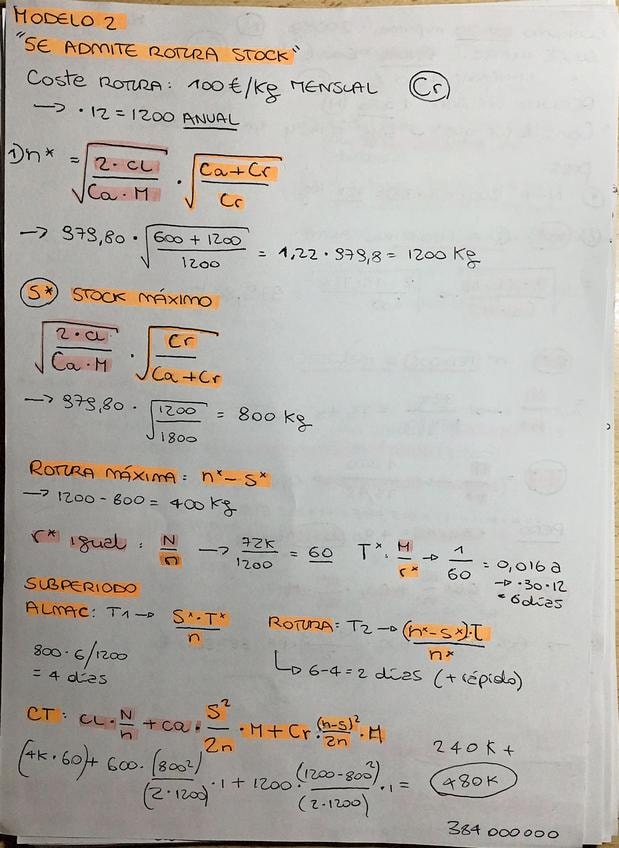 MODELO 2
"SE ADMITE ROTURA STOCK"
COSTE ROTURA: 100 €/Kg MENSUAL (Cr)
→ · 12 = 1200 ANUAL
1) n* = √(2 · CL / Ca · M) · √(Ca + Cr / Cr)
→ 979,80 · √(600 + 1200 / 1200) = 1,22 · 979,8 = 1200 Kg
S* STOCK MÁXIMO
√(2 · CL / Ca · M) · √(Cr / Ca + Cr)
→ 979,80 · √(1200 / 1800) = 800 Kg
ROTURA MÁXIMA: n* - S*
→ 1200 - 800 = 400 Kg
r* igual: N/n → 72K/1200 = 60 T* · M/r* → 1/60 = 0,016 a
→ · 30 · 12
= 6 días
SUBPERIODO
ALMAC: T1 → S* · T* / n
ROTURA: T2 → (n* - S*) · T / n*
800 · 6 / 1200
= 4 días
↳ 6 - 4 = 2 días (+ rápido)
CT: CL · N/n + Ca · S²/2n · M + Cr · (n-S)²/2n · M
(4K · 60) + 600 · (800²)/(2 · 1200) · 1 + 1200 · (1200 - 800²)/(2 · 1200) · 1 =
240K +
480K
384 000 000